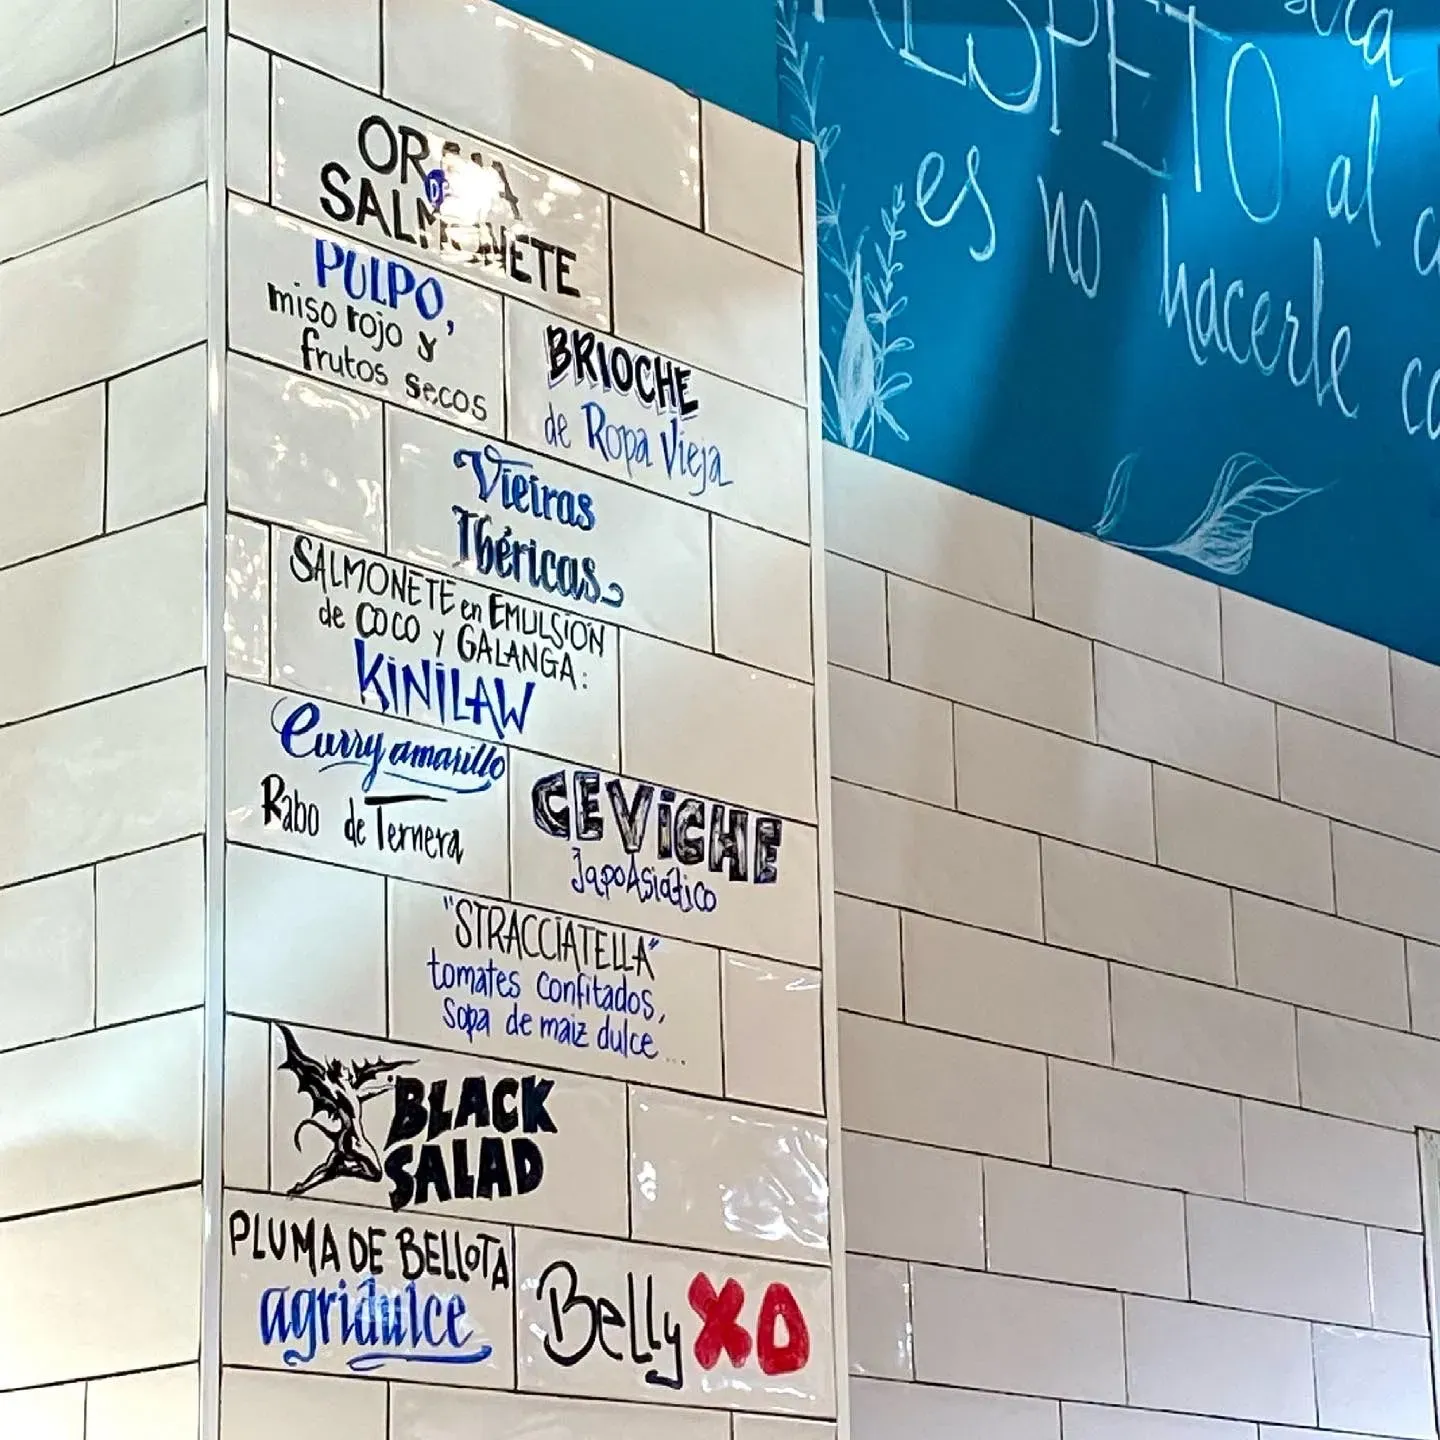 DE
SALMONETE
PULPO,
miso rojo y
frutos secos
BRIOCHE
de Ropa Vieja
Vieiras
Ibéricas
SALMONETE en EMULSIÓN
de COCO y GALANGA:
KINILAW
Curry amarillo
Rabo de Ternera
CEVICHE
JapoAsiático
"STRACCIATELLA"
tomates confitados,
Sopa de maiz dulce...
BLACK
SALAD
PLUMA DE BELLOTA
agridulce
Belly XO
es no hacerle
al